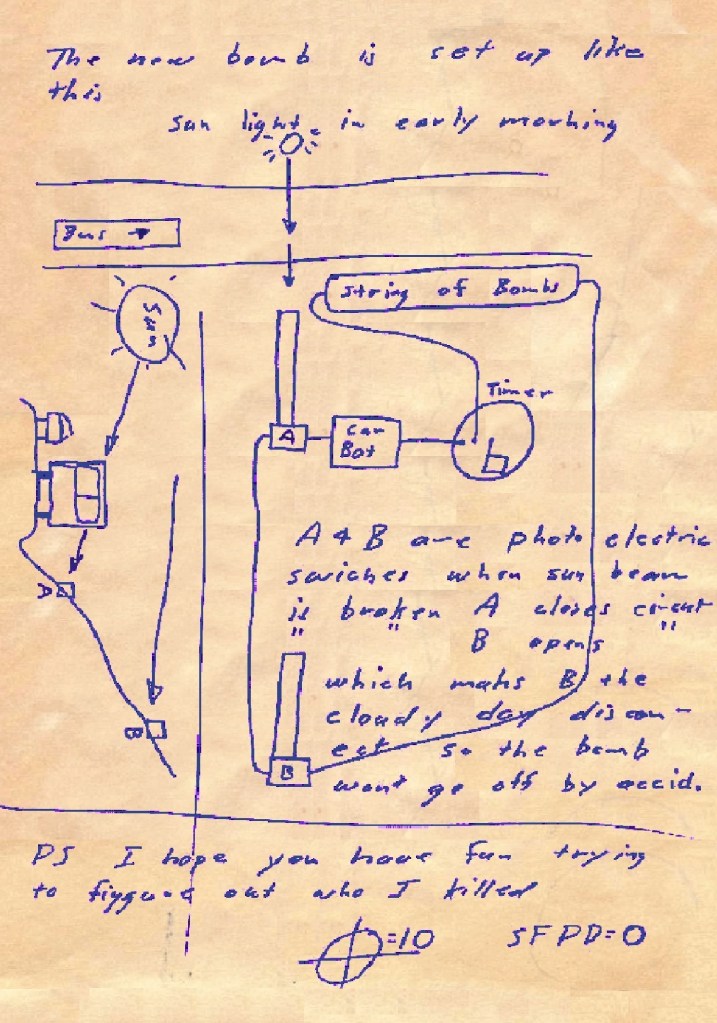 The new bomb is set up like
this
sun light in early morning
Bus
Sun
String of Bombs
Timer
A
Car
Bat
A & B are photo electric
swiches when sun beam
is broken A closes circut
" " B opens "
A
which mahs B the
cloudy day discon-
B
ect so the bomb
B
wont go off by accid.
PS I hope you have fun trying
to fiygure out who I killed
=10 SFPD=0